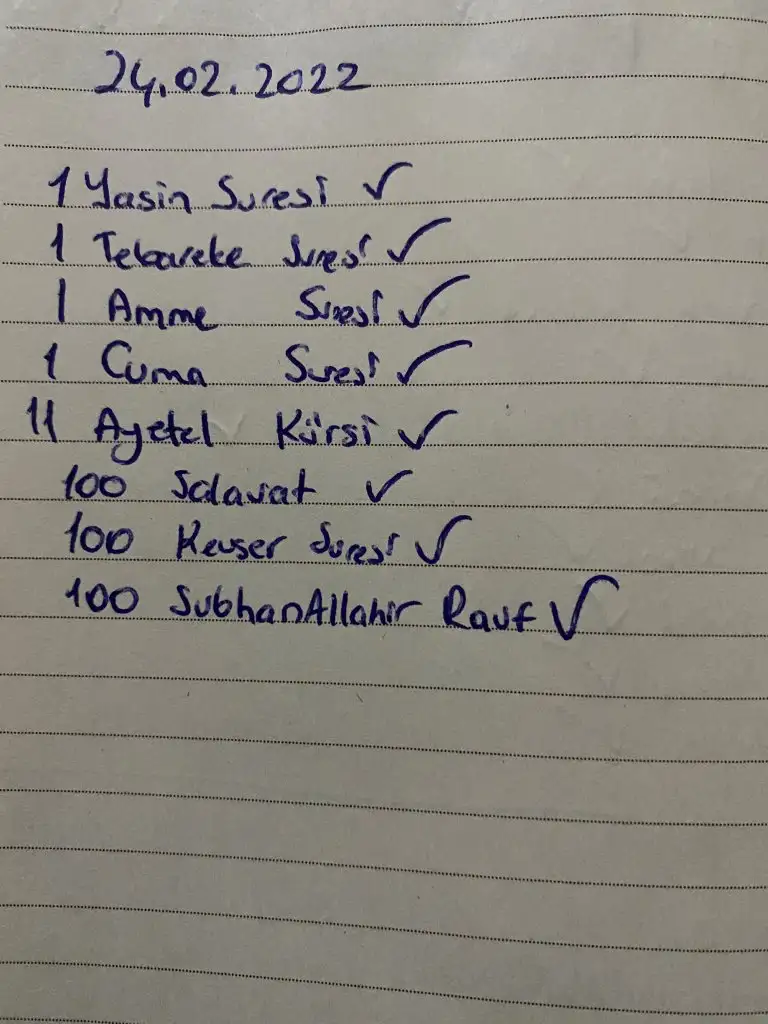 24.02.2022
1 Yasin Suresi ✓
1 Tebareke Suresi ✓
1 Amme Suresi ✓
1 Cuma Suresi ✓
11 Ayetel Kürsi ✓
100 Salavat ✓
100 Kevser Suresi ✓
100 SubhanAllahir Rauf ✓